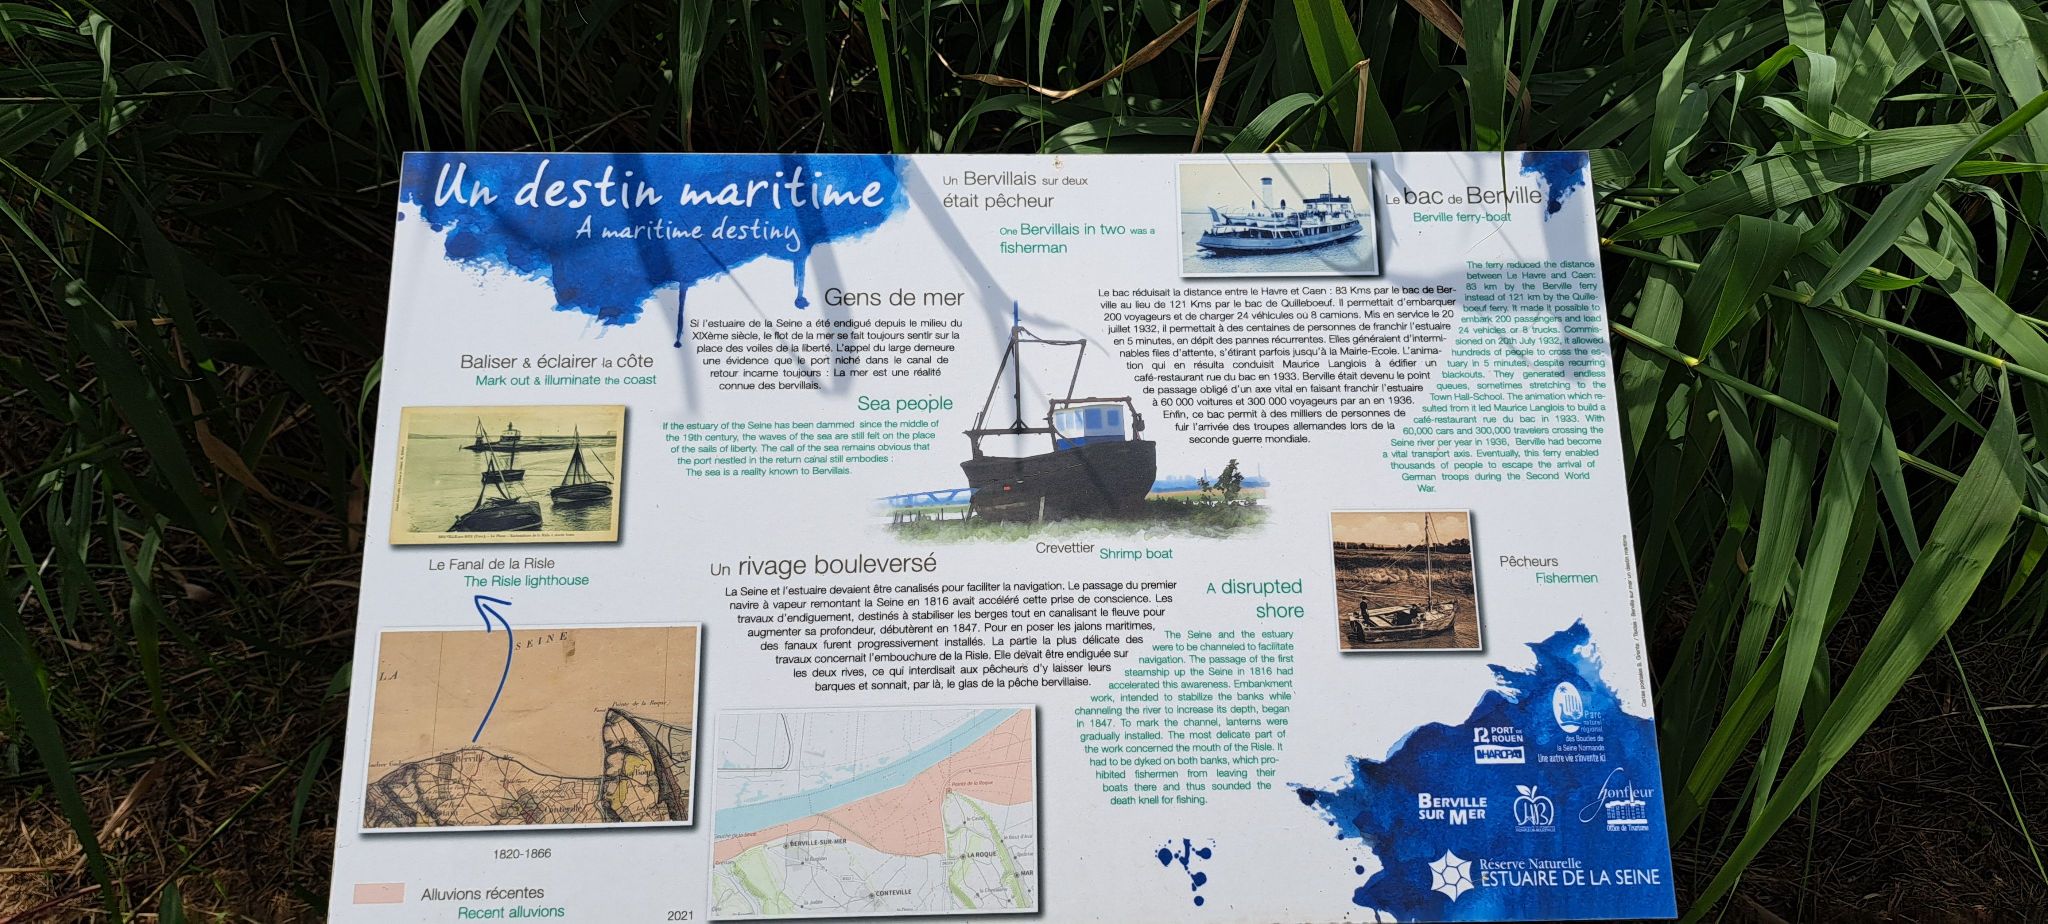 Un destin maritime
A maritime destiny
Gens de mer
Si l'estuaire de la Seine a été endigué depuis le milieu du
XIXème siècle, le flot de la mer se fait toujours sentir sur la
place des voiles de la liberté. L'appel du large demeure
une évidence que le port niché dans le canal de
retour incarne toujours : La mer est une réalité
connue des bervillais.
Sea people
If the estuary of the Seine has been dammed since the middle of
the 19th century, the waves of the sea are still felt on the place
of the sails of liberty. The call of the sea remains obvious that
the port nestled in the return canal still embodies :
The sea is a reality known to Bervillais.
Baliser & éclairer la côte
Mark out & illuminate the coast
Le Fanal de la Risle
The Risle lighthouse
LA
SEINE
Pointe de la Roque
Berville sur Mer
Conteville
1820-1866
Alluvions récentes
Recent alluvions
2021
Un Bervillais sur deux
était pêcheur
One Bervillais in two was a
fisherman
Le bac de Berville
Berville ferry-boat
Le bac réduisait la distance entre le Havre et Caen : 83 Kms par le bac de Ber-
ville au lieu de 121 Kms par le bac de Quilleboeuf. Il permettait d'embarquer
200 voyageurs et de charger 24 véhicules où 8 camions. Mis en service le 20
juillet 1932, il permettait à des centaines de personnes de franchir l'estuaire
en 5 minutes, en dépit des pannes récurrentes. Elles généraient d'intermi-
nables files d'attente, s'étirant parfois jusqu'à la Mairie-Ecole. L'anima-
tion qui en résulta conduisit Maurice Langlois à édifier un
café-restaurant rue du bac en 1933. Berville était devenu le point
de passage obligé d'un axe vital en faisant franchir l'estuaire
à 60 000 voitures et 300 000 voyageurs par an en 1936.
Enfin, ce bac permit à des milliers de personnes de
fuir l'arrivée des troupes allemandes lors de la
seconde guerre mondiale.
The ferry reduced the distance
between Le Havre and Caen:
83 km by the Berville ferry
instead of 121 km by the Quille-
boeuf ferry. It made it possible to
embark 200 passengers and load
24 vehicles or 8 trucks. Commis-
sioned on 20th July 1932, it allowed
hundreds of people to cross the es-
tuary in 5 minutes, despite recurring
blackouts. They generated endless
queues, sometimes stretching to the
Town Hall-School. The animation which re-
sulted from it led Maurice Langlois to build a
café-restaurant rue du bac in 1933. With
60,000 cars and 300,000 travelers crossing the
Seine river per year in 1936, Berville had become
a vital transport axis. Eventually, this ferry enabled
thousands of people to escape the arrival of
German troops during the Second World
War.
Crevettier Shrimp boat
Pêcheurs
Fishermen
Un rivage bouleversé
La Seine et l'estuaire devaient être canalisés pour faciliter la navigation. Le passage du premier
navire à vapeur remontant la Seine en 1816 avait accéléré cette prise de conscience. Les
travaux d'endiguement, destinés à stabiliser les berges tout en canalisant le fleuve pour
augmenter sa profondeur, débutèrent en 1847. Pour en poser les jalons maritimes,
des fanaux furent progressivement installés. La partie la plus délicate des
travaux concernait l'embouchure de la Risle. Elle devait être endiguée sur
les deux rives, ce qui interdisait aux pêcheurs d'y laisser leurs
barques et sonnait, par là, le glas de la pêche bervillaise.
A disrupted
shore
The Seine and the estuary
were to be channeled to facilitate
navigation. The passage of the first
steamship up the Seine in 1816 had
accelerated this awareness. Embankment
work, intended to stabilize the banks while
channeling the river to increase its depth, began
in 1847. To mark the channel, lanterns were
gradually installed. The most delicate part of
the work concerned the mouth of the Risle. It
had to be dyked on both banks, which pro-
hibited fishermen from leaving their
boats there and thus sounded the
death knell for fishing.
Pointe de la Roque
BERVILLE-SUR-MER
LA ROQUE
CONTEVILLE
MAR
PORT DE
ROUEN
HAROPA
Parc
naturel
régional
des Boucles de
la Seine Normande
Une autre vie s'invente ici
BERVILLE
SUR MER
Honfleur
Office de Tourisme
Réserve Naturelle
ESTUAIRE DE LA SEINE